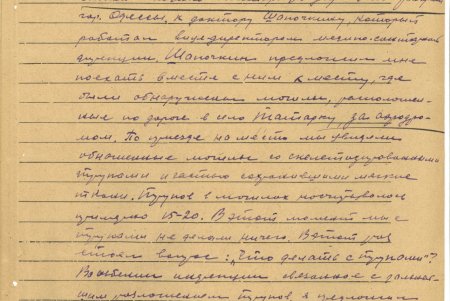 гор. Одессы, к доктору Шапочкину, который
работал вице директором медико-санитарной
дирекции. Шапочкин предложил мне
поехать вместе с ним к месту, где
были обнаружены могилы, расположен-
ные по дороге в село Татарку, за аэродро-
мом. По приезде на место мы увидели
обнаженные могилы со скелетизированными
трупами и частью сохранившими мягкие
ткани. Трупов в могилах насчитывалось
примерно 15-20. В этот момент мы с
трупами не делали ничего. В этот раз
стоял вопрос: "Что делать с трупами"?
Во избежание инфекции связанное с дальней-
шим разложением трупов я предложил